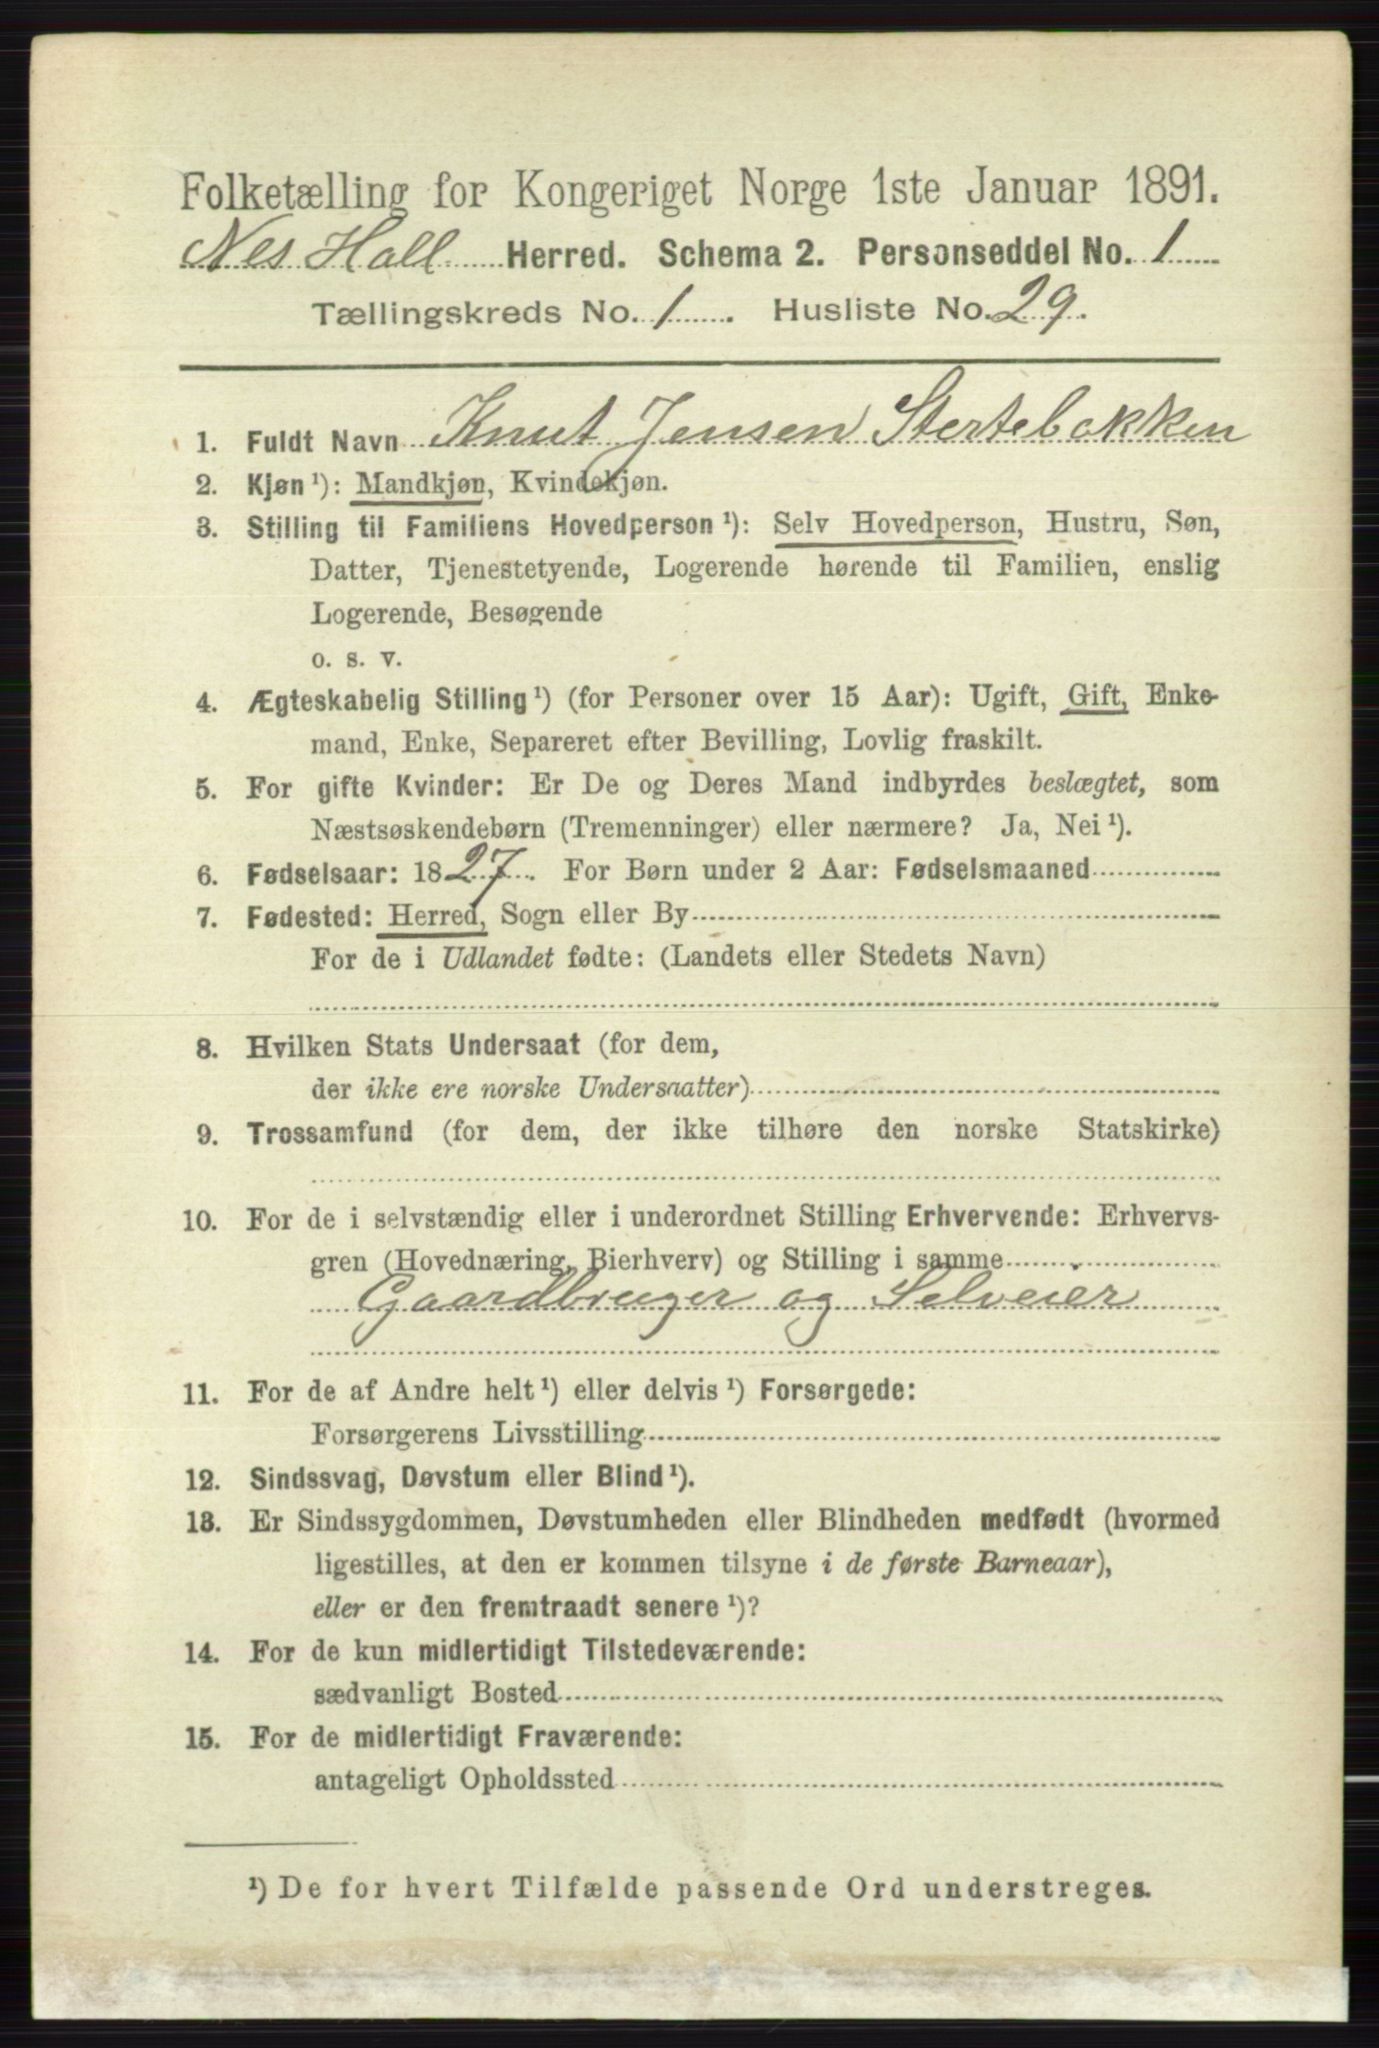 Folketælling for Kongeriget Norge 1ste Januar 1891.
Nes Hall Herred. Schema 2. Personseddel No. 1
Tællingskreds No. 1. Husliste No. 29.
1. Fuldt Navn Knut Jensen Stertebakken
2. Kjøn¹): Mandkjøn, Kvindekjøn.
3. Stilling til Familiens Hovedperson¹): Selv Hovedperson, Hustru, Søn,
Datter, Tjenestetyende, Logerende hørende til Familien, enslig
Logerende, Besøgende
o. s. v.
4. Ægteskabelig Stilling¹) (for Personer over 15 Aar): Ugift, Gift, Enke-
mand, Enke, Separeret efter Bevilling, Lovlig fraskilt.
5. For gifte Kvinder: Er De og Deres Mand indbyrdes beslægtet, som
Næstsøskendebørn (Tremenninger) eller nærmere? Ja, Nei¹).
6. Fødselsaar: 1827. For Børn under 2 Aar: Fødselsmaaned
7. Fødested: Herred, Sogn eller By
For de i Udlandet fødte: (Landets eller Stedets Navn)
8. Hvilken Stats Undersaat (for dem,
der ikke ere norske Undersaatter)
9. Trossamfund (for dem, der ikke tilhøre den norske Statskirke)
10. For de i selvstændig eller i underordnet Stilling Erhvervende: Erhvervs-
gren (Hovednæring, Bierhverv) og Stilling i samme
Gaardbruger og Selveier
11. For de af Andre helt¹) eller delvis¹) Forsørgede:
Forsørgerens Livsstilling
12. Sindssvag, Døvstum eller Blind¹).
13. Er Sindssygdommen, Døvstumheden eller Blindheden medfødt (hvormed
ligestilles, at den er kommen tilsyne i de første Barneaar),
eller er den fremtraadt senere¹)?
14. For de kun midlertidigt Tilstedeværende:
sædvanligt Bosted
15. For de midlertidigt Fraværende:
antageligt Opholdssted
¹) De for hvert Tilfælde passende Ord understreges.